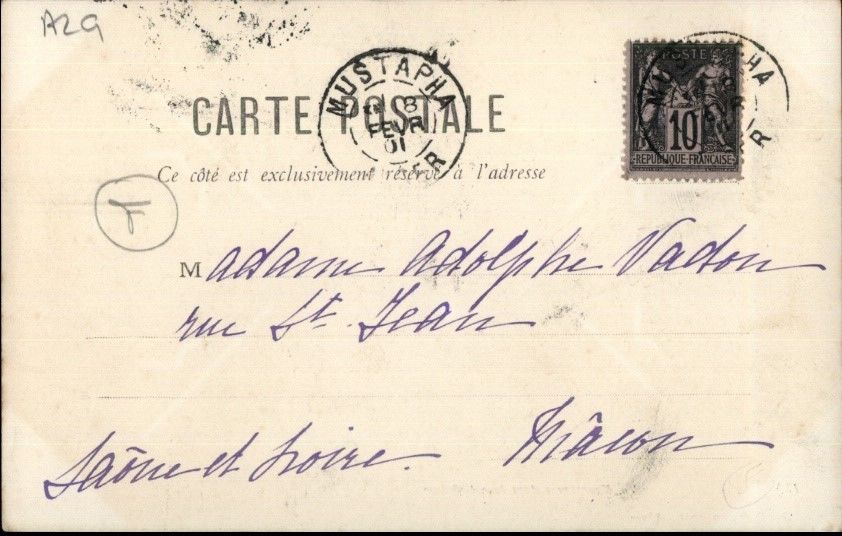 A29
MUSTAPHA
8
FEVR
01
POSTE
10
REPUBLIQUE FRANÇAISE
CARTE POSTALE
Ce côté est exclusivement réservé à l'adresse
Madame Adolphe Vadon
rue St. Jean
Mâcon
Saône et Loire.